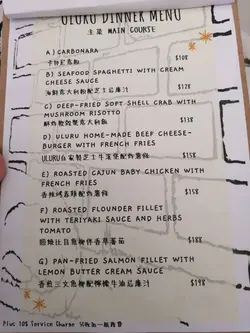 ULURU DINNER MENU
主菜 MAIN COURSE
A) CARBONARA
卡邦尼意粉 $108
B) SEAFOOD SPAGHETTI WITH CREAM
CHEESE SAUCE
海鮮意大利粉配芝士忌廉汁 $128
C) DEEP-FRIED SOFT SHELL CRAB WITH
MUSHROOM RISOTTO
$138
D) ULURU HOME-MADE BEEF CHEESE-
BURGER WITH FRENCH FRIES
ULURU自家製芝士牛漢堡配炸薯條 $158
E) ROASTED CAJUN BABY CHICKEN WITH
FRENCH FRIES
香辣烤春雞配炸薯條 $158
F) ROASTED FLOUNDER FILLET
WITH TERIYAKI SAUCE AND HERBS
TOMATO
$188
G) PAN-FRIED SALMON FILLET WITH
LEMON BUTTER CREAM SAUCE
香煎三文魚柳配檸檬牛油忌廉汁 $198
Plus 10% Service Charge 另收加一服務費